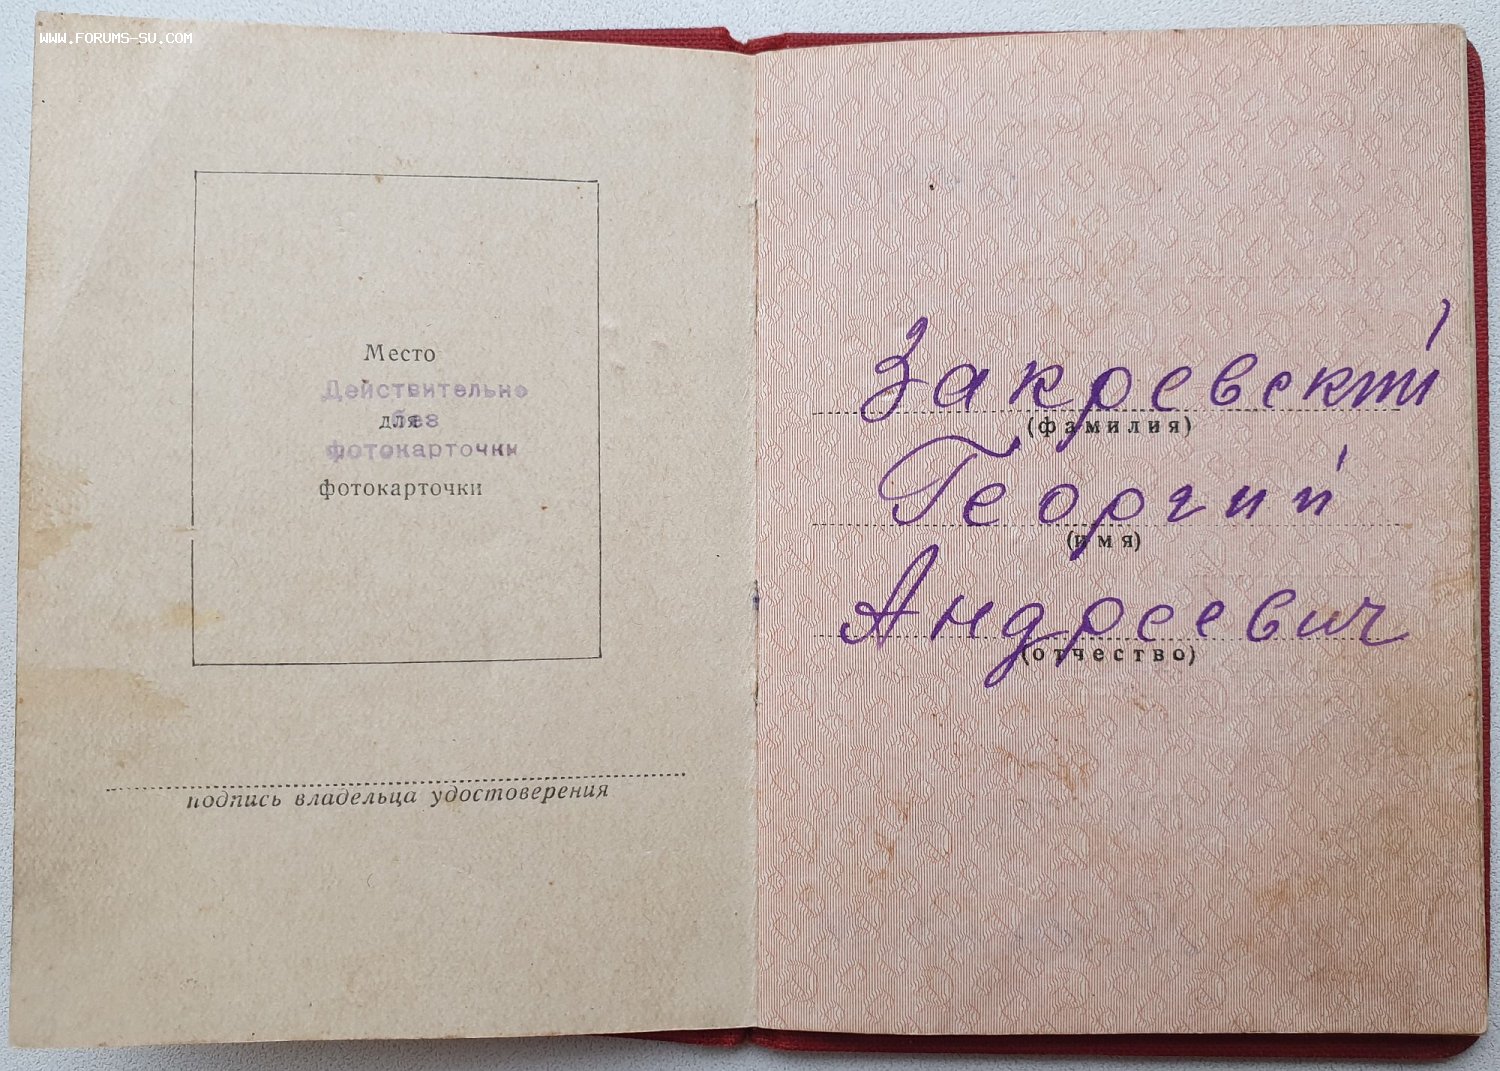 WWW.FORUMS-SU.COM
Место
Действительно
для
без
фотокарточки
фотокарточки
подпись владельца удостоверения
Закревский
(фамилия)
Георгий
(имя)
Андреевич
(отчество)